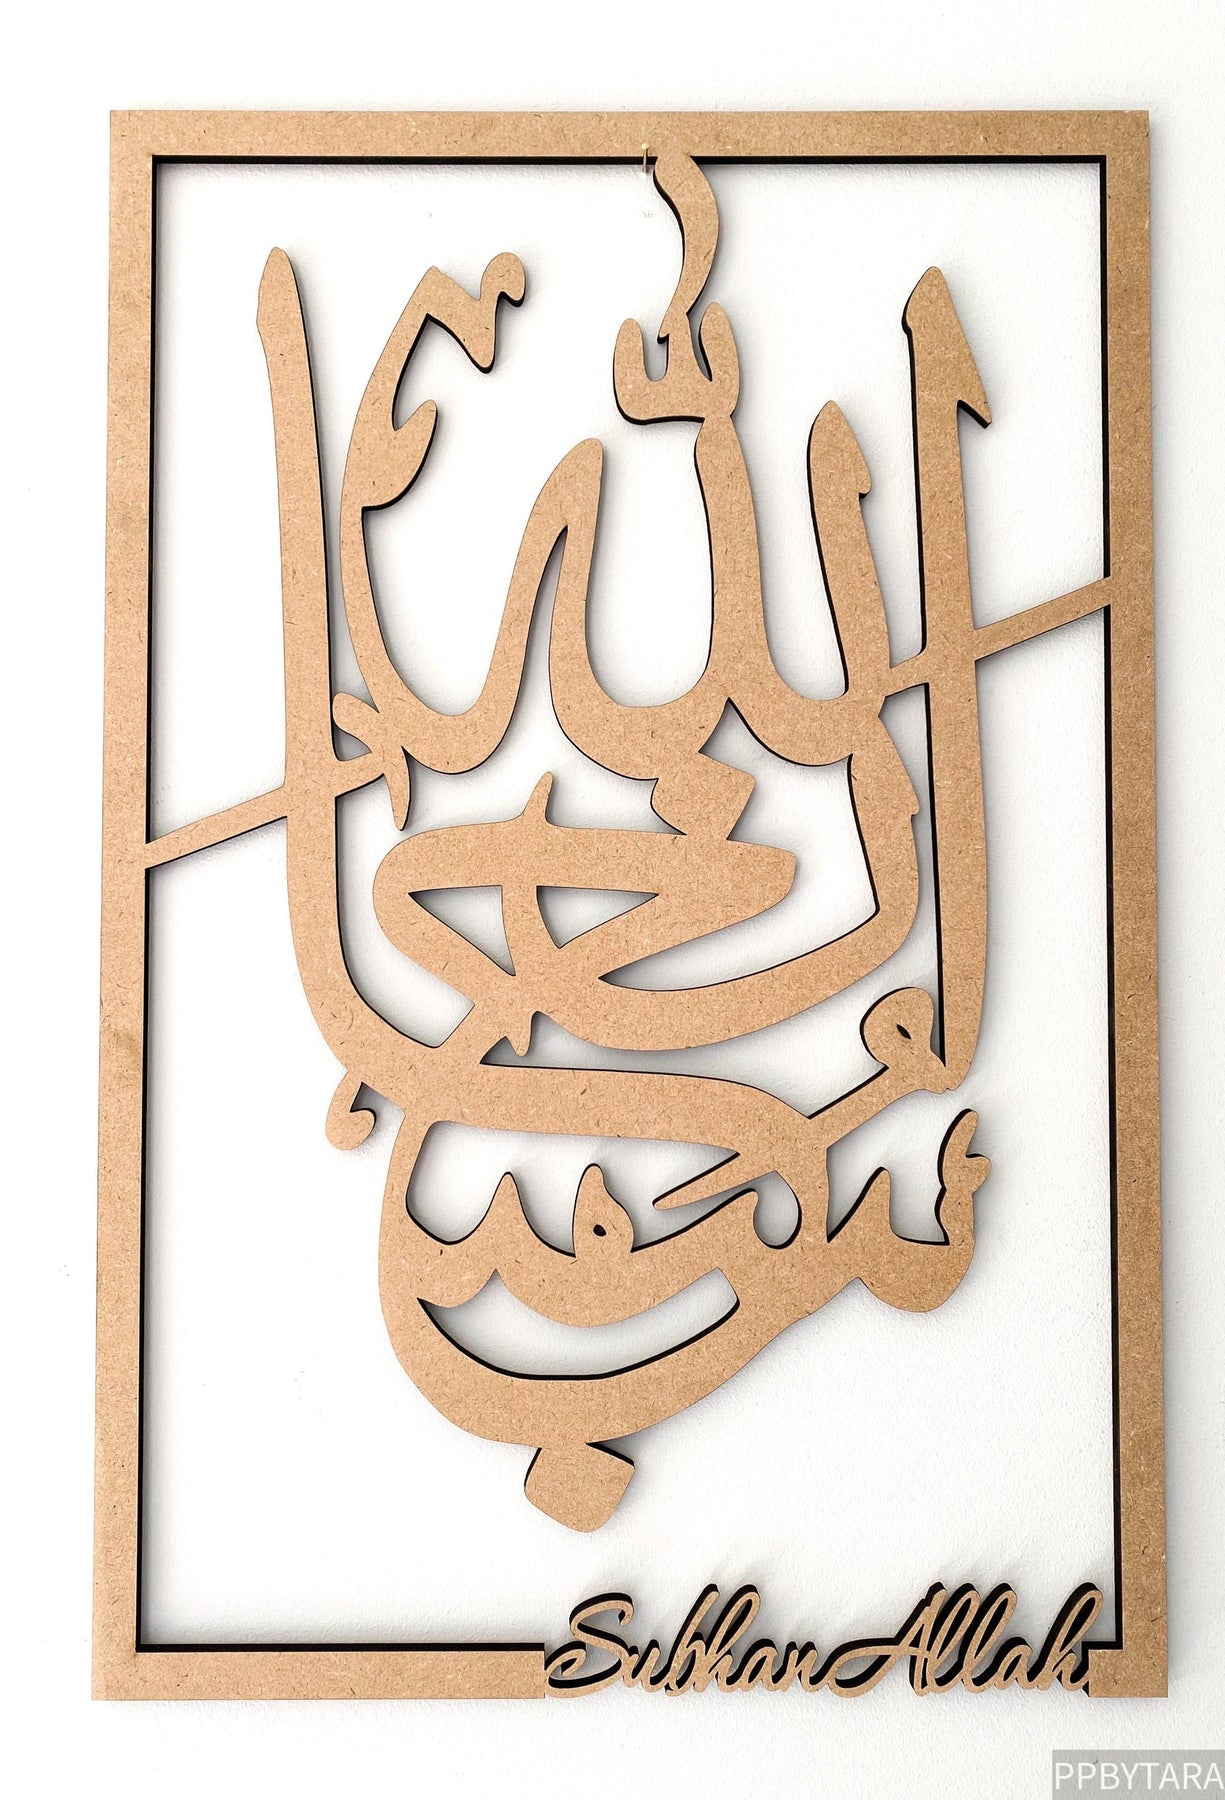 سُبْحَانَ اللّٰه
Subhan Allah
PPBYTARA